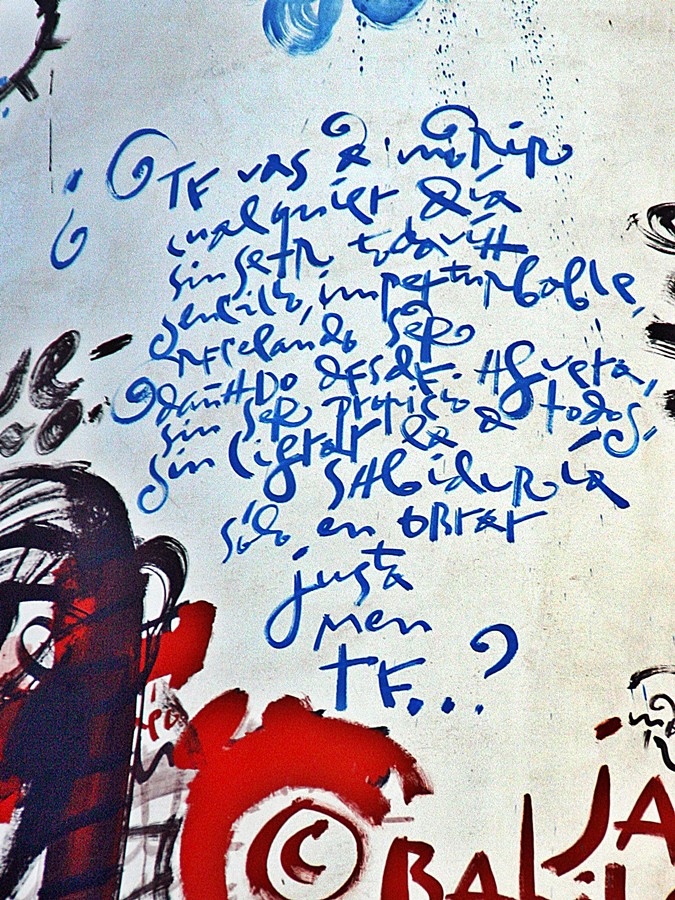 ¿TE vas a morir
cualquier día
sin ser todavía
sencillo, imperturbable,
recelando ser
dañADO desde AFuera,
sin ser propicio a todos,
sin cifrar la
SABiduría
sólo en obrar
justa
men
TE...?
JA
©